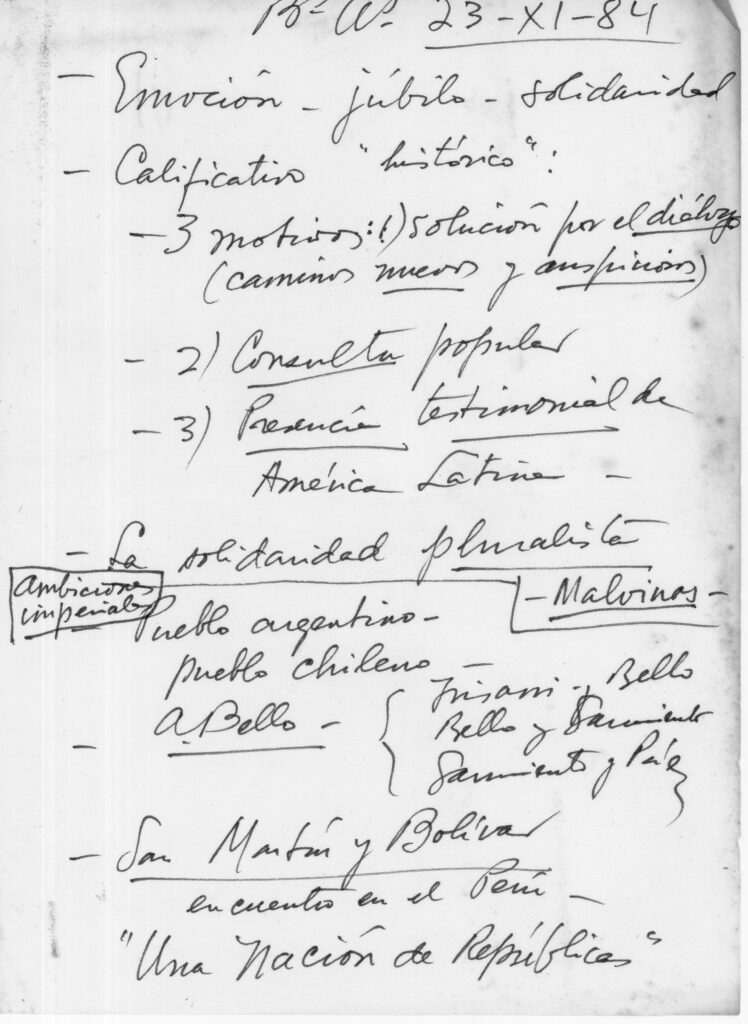 Bs As. 23-XI-84
- Emoción - júbilo - solidaridad
- Calificativo "histórico":
- 3 motivos: 1) solución por el diálogo
(caminos nuevos y auspiciosos)
- 2) Consulta popular
- 3) Presencia testimonial de
América Latina -
- La solidaridad pluralista
ambiciones
imperiales
- Malvinas -
Pueblo argentino -
pueblo chileno -
- A. Bello -
Irisarri y Bello
Bello y Sarmiento
Sarmiento y Páez
- San Martín y Bolívar
encuentro en el Perú -
"Una Nación de Repúblicas"